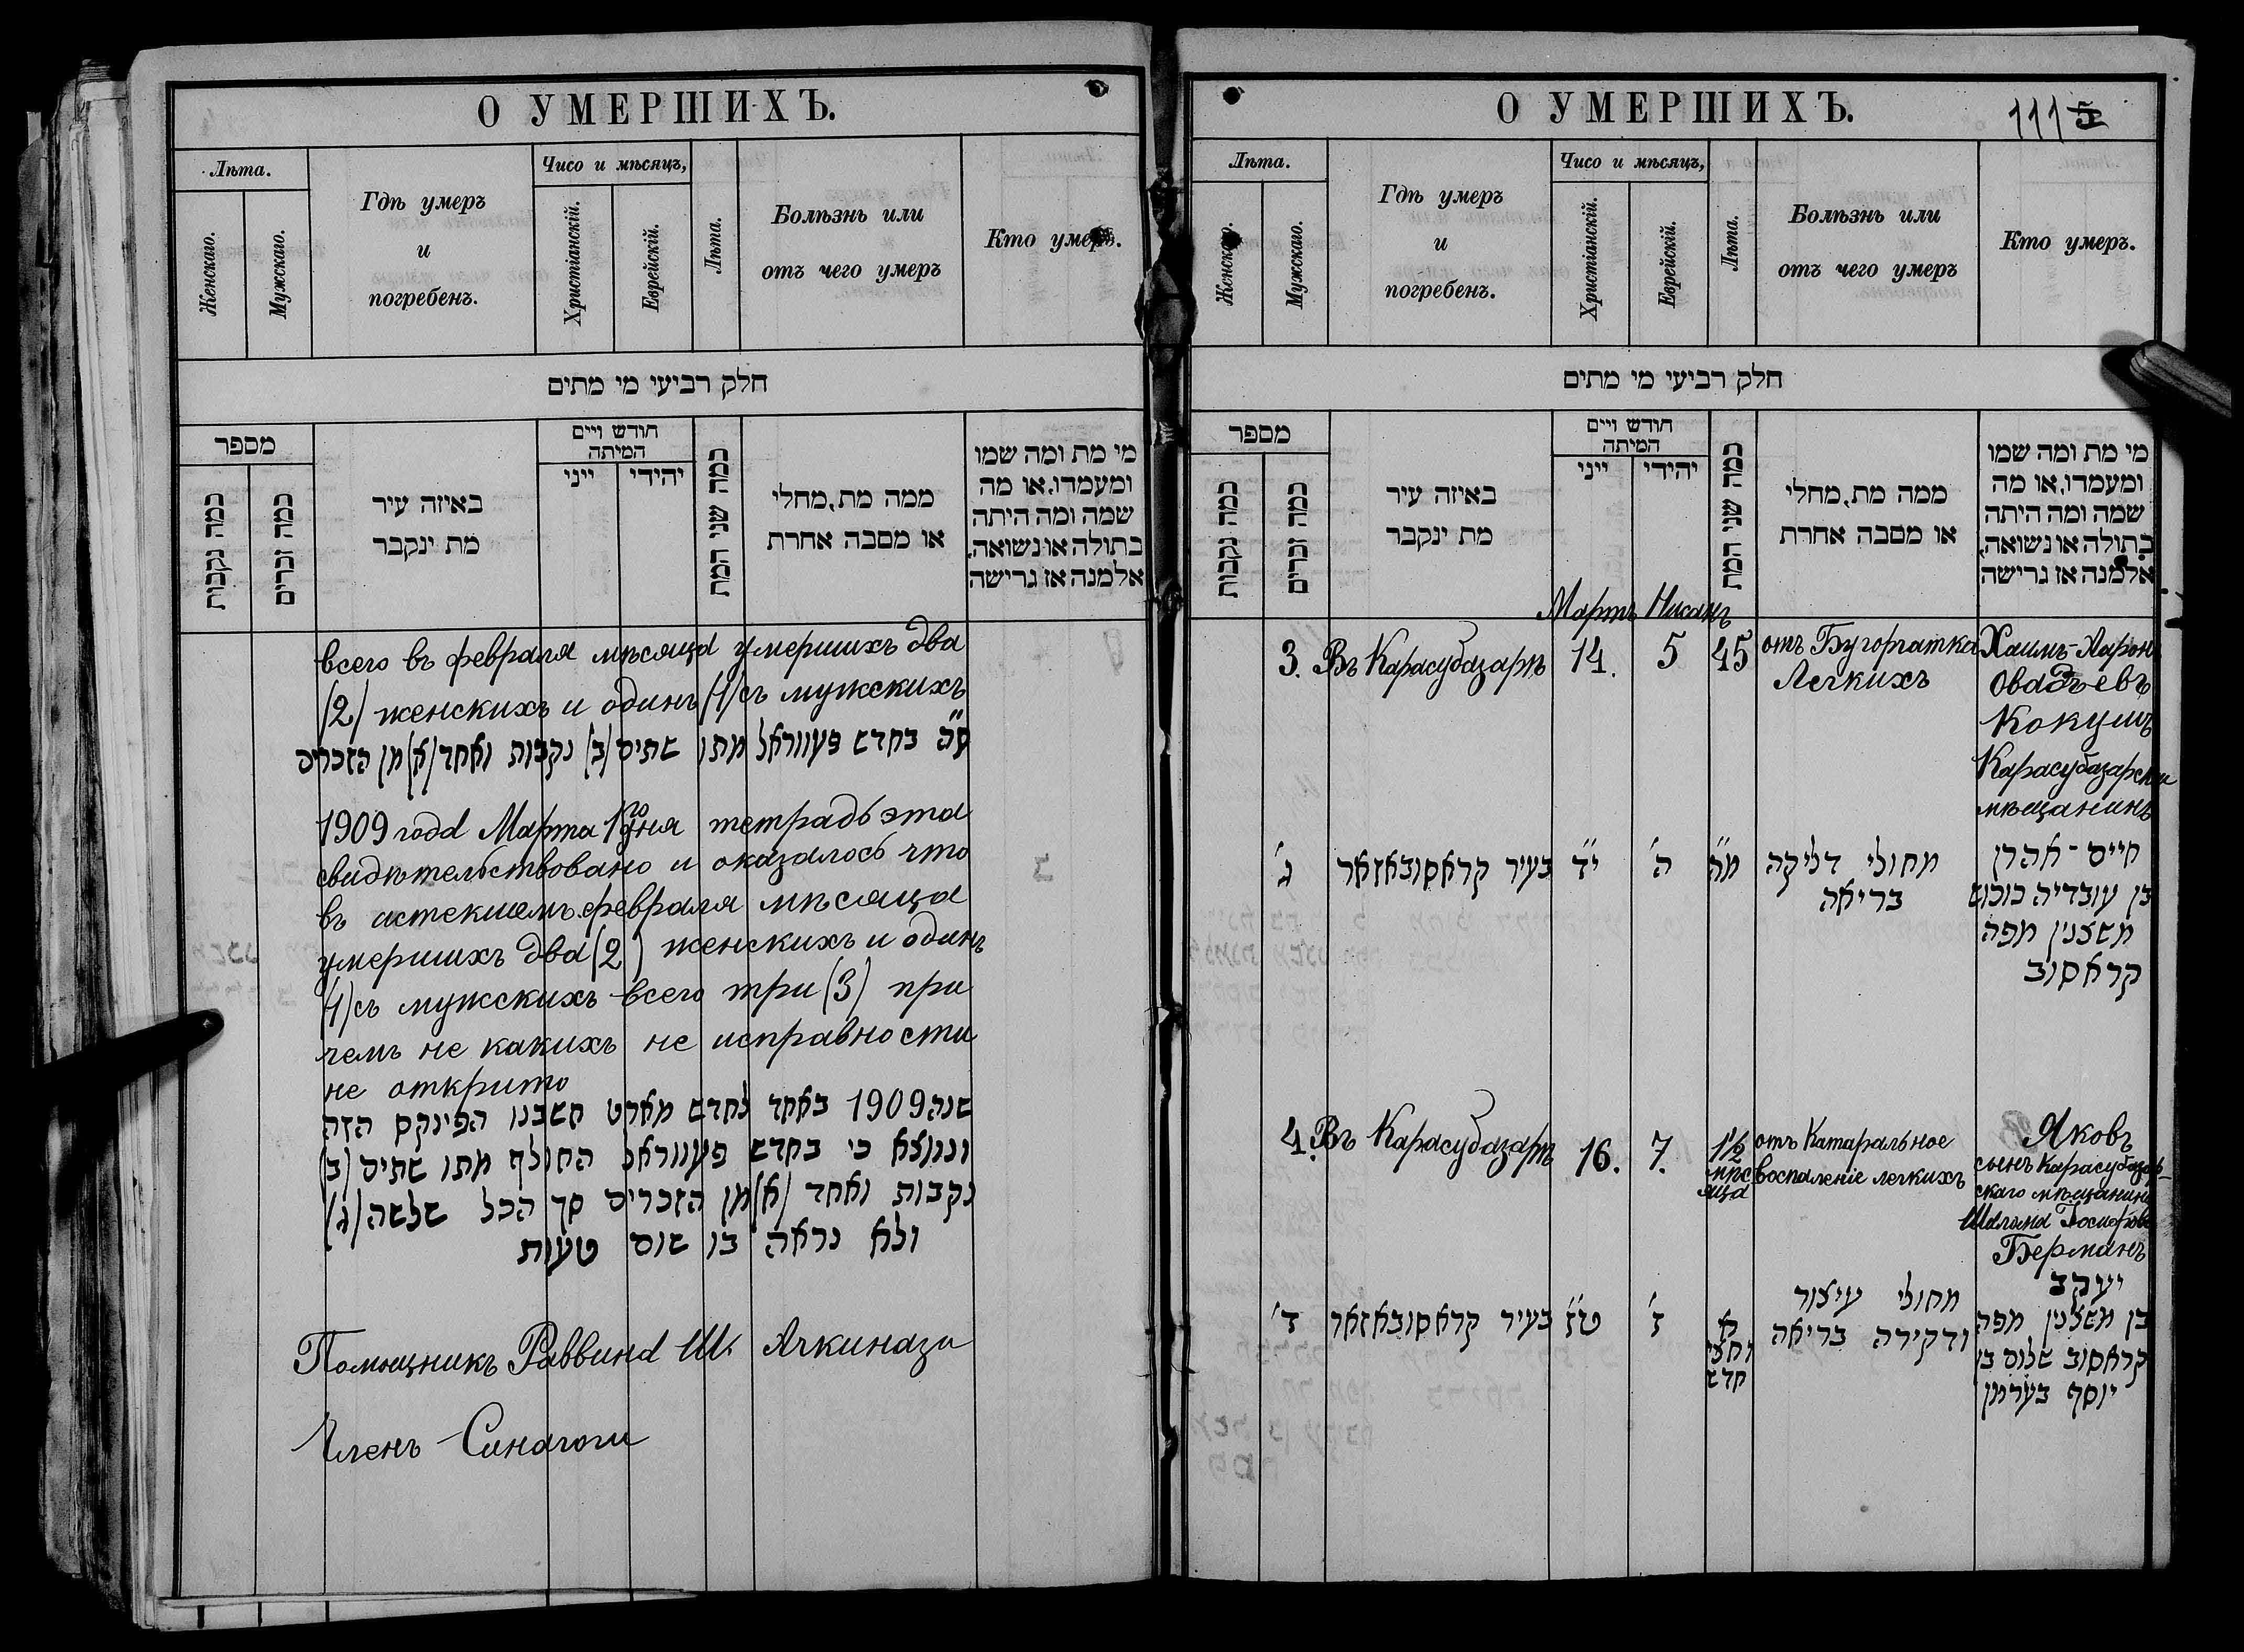 О УМЕРШИХЪ.
Лѣта.
Женскаго.
Мужскаго.
Гдѣ умеръ
и
погребенъ.
Чисо и мѣсяцъ,
Христіанскій.
Еврейскій.
Лѣта.
Болѣзнь или
отъ чего умеръ
Кто умеръ.
חלק רביעי מי מתים
מספר
כמה נקבות
כמה זכרים
באיזה עיר
מת ינקבר
חודש ויים
המיתה
ייני
יהידי
כמה שני המת
ממה מת, מחלי
או מסבה אחרת
מי מת ומה שמו
ומעמדו, או מה
שמה ומה היתה
בתולה או נשואה,
אלמנה אז גרישה
всего въ февраля мѣсяца умершихъ два
(2) женскихъ и одинъ (1) съ мужскихъ
ס״ה בחדש פעווראל מתו שתים (ב) נקבות ואחד (א) מן הזכרים
1909 года Марта 1го дня тетрадь эта
свидѣтельствовано и оказалось что
въ истекшемъ февраля мѣсяца
умершихъ два (2) женскихъ и одинъ
(1) съ мужскихъ всего три (3) при
чемъ не какихъ не исправности
не открито
שנה 1909 באחד לחדש מארט חשבנו הפינקס הזה
ונמצא כי בחדש פעווראל החולף מתו שתים (ב)
נקבות ואחד (א) מן הזכרים סך הכל שלשה (ג)
ולא נראה בו שום טעות
Помощникъ Раввина Ш. Ачкинази
Членъ Синагоги
О УМЕРШИХЪ.
111 5
Лѣта.
Женскаго.
Мужскаго.
Гдѣ умеръ
и
погребенъ.
Чисо и мѣсяцъ,
Христіанскій.
Еврейскій.
Лѣта.
Болѣзнь или
отъ чего умеръ
Кто умеръ.
חלק רביעי מי מתים
מספר
כמה נקבות
כמה זכרים
באיזה עיר
מת ינקבר
חודש ויים
המיתה
ייני
יהידי
כמה שני המת
ממה מת, מחלי
או מסבה אחרת
מי מת ומה שמו
ומעמדו, או מה
שמה ומה היתה
בתולה או נשואה,
אלמנה אז גרישה
Мартъ Нисанъ
3. Въ Карасубазарѣ 14. 5 45 отъ Бугорчатка
Легкихъ
Хаимъ-Аронъ
Овадъевъ
Кокушъ
Карасубазарски
мѣщанинъ
ג׳ בעיר קראסובאזאר י״ד ה׳ מ״ה מחולי דליקה
בריאה
חיים־אהרן
בן עובדיה כוכוש
משצנין מפה
קראסוב
4. Въ Карасубазарѣ 16. 7. 1½
мѣс
яца
отъ Катаральное
воспаленіе легкихъ
Яковъ
сынъ Карасубазар-
скаго мѣщанина
Шалома Іосифова
Берманъ
ד׳ בעיר קראסובאזאר ט״ז ז׳ א
וחצי
חדש
מחולי עיצור
ודקירה בריאה
יעקב
בן משצנין מפה
קראסוב שלום בן
יוסף בערמן